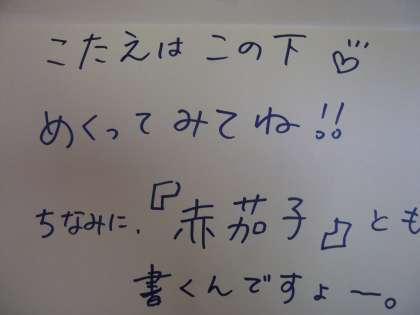 こたえは この下♡
めくってみてね!!
ちなみに、『赤茄子』とも
書くんですよー。